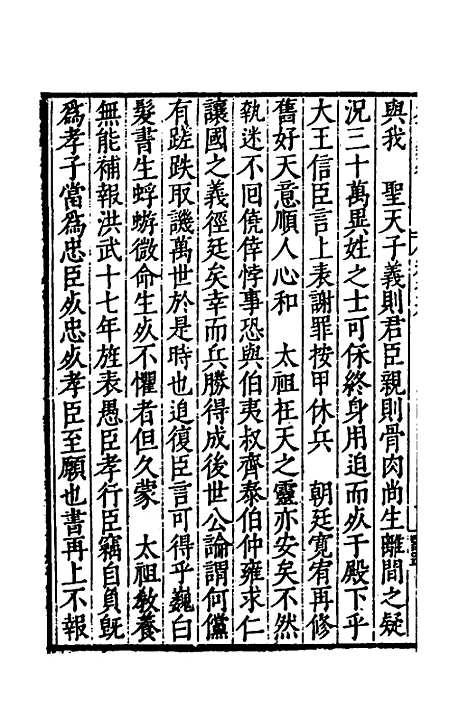 與我　聖天子義則君臣親則骨肉尚生離間之疑
況三十萬異姓之士可保終身用追而死于殿下乎
大王信臣言上表謝罪按甲休兵　朝廷寬宥再修
舊好天意順人心和　太祖在天之靈亦安矣不然
執迷不囘僥倖悖事恐與伯夷叔齊泰伯仲雍求仁
讓國之義徑廷矣幸而兵勝得成後世公論謂何儻
有蹉跌取譏萬世於是時也追復臣言可得乎巍白
髮書生蜉蝣微命生死不懼者但久蒙　太祖教養
無能補報洪武十七年旌表愚臣孝行臣竊自負旣
爲孝子當爲忠臣死忠死孝臣至願也書再上不報